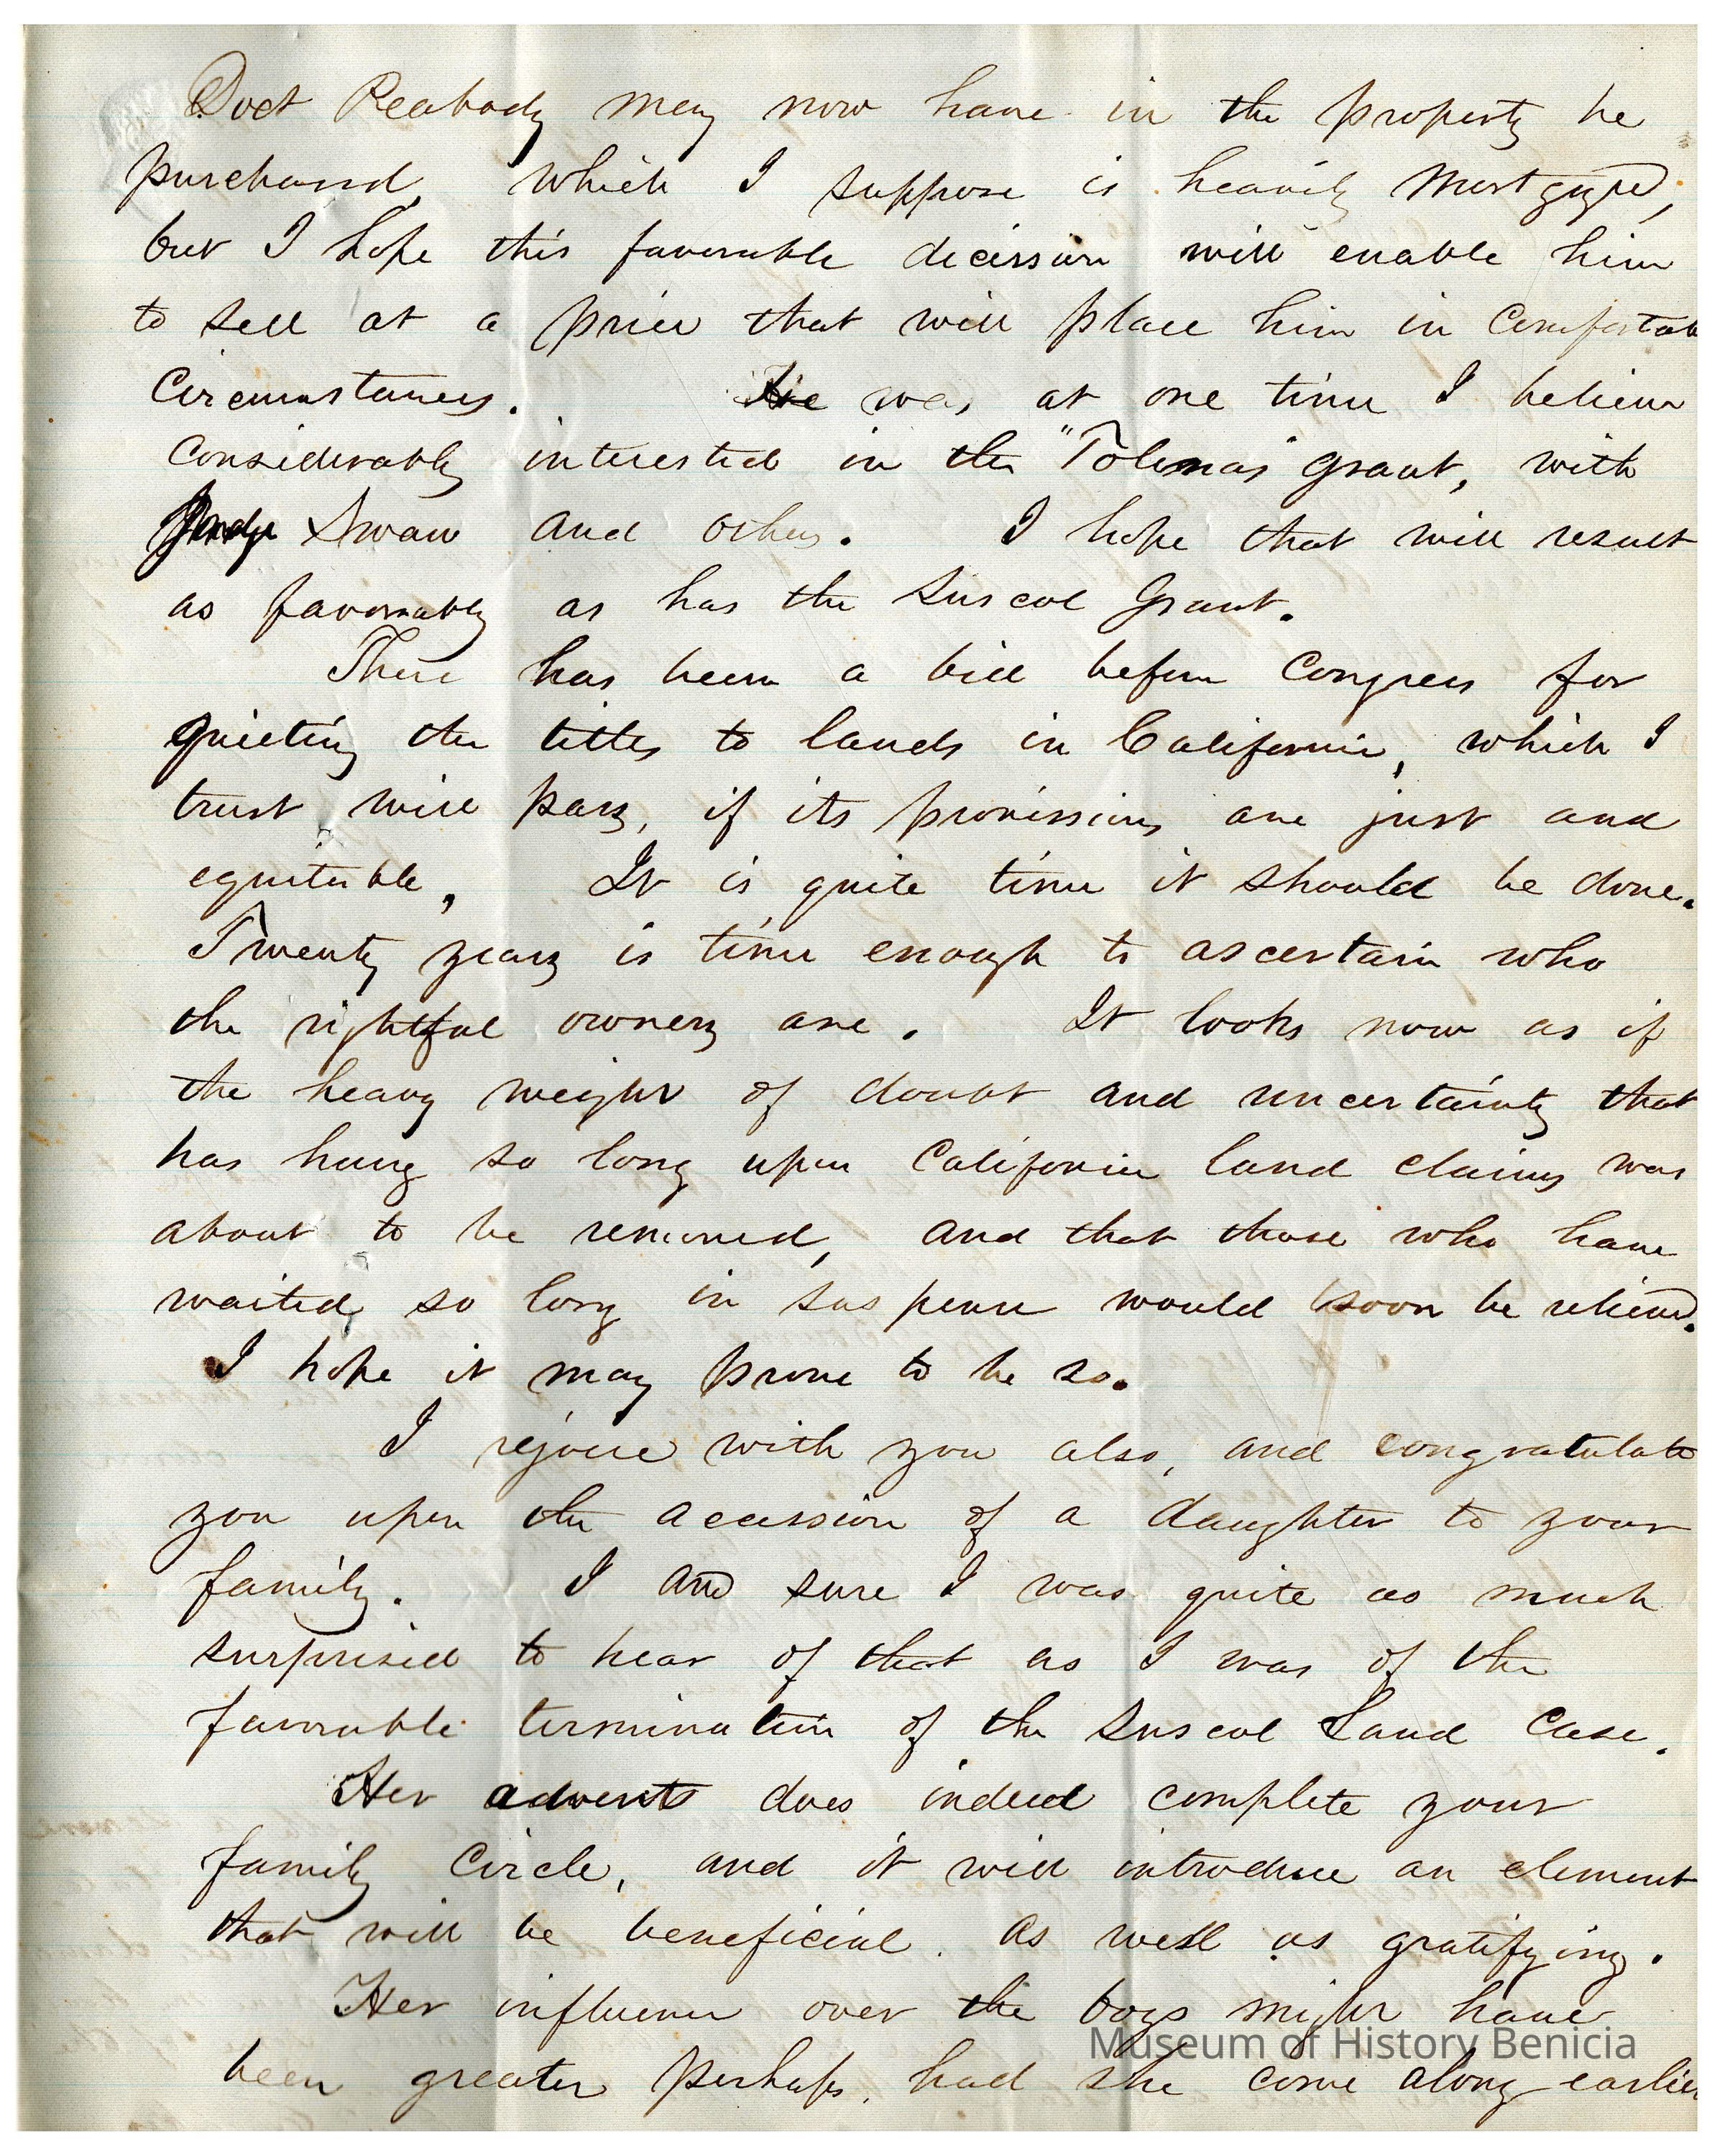 Doct Peabody may now have in the property he
purchased, which I suppose is heavily mortgaged,
but I hope this favorable decission will enable him
to sell at a price that will place him in Comfortab
Circumstances. He was, at one time I believe
Considerably interested in the "Tolenas grant, with
Judge Swan and others. I hope that will result
as favorably as has the Suscol Grant.
There has been a bill before Congress for
quieting the titles to lands in California, which I
trust will pass, if its provissions are just and
equitable, It is quite time it should be done.
Twenty years is time enough to ascertain who
the rightful owners are. It looks now as if
the heavy weight of doubt and uncertainty that
has hung so long upon California land claims was
about to be removed, and that those who have
waited so long in suspense would soon be relieved.
I hope it may prove to be so.
I rejoice with you also, and congratulate
you upon the accession of a daughter to your
family. I am sure I was quite as much
surprised to hear of that as I was of the
favorable termination of the Suscol Land Case.
Her advent does indeed complete your
family Circle, and it will introduce an element
that will be beneficial. as well as gratifying.
Her influence over the boys might have
been greater perhaps, had she come along earlier
Museum of History Benicia